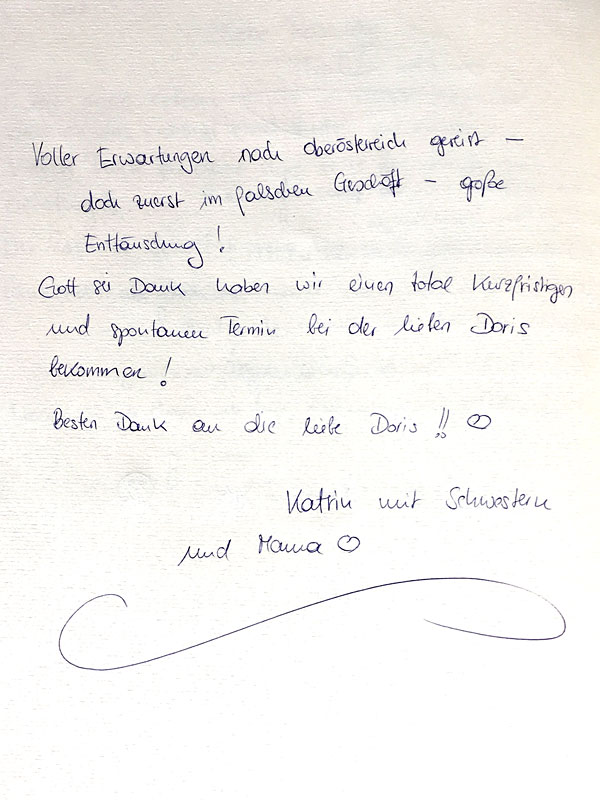 Voller Erwartungen nach Oberösterreich gereist –
doch zuerst im falschen Geschäft – goße
Enttäuschung !
Gott sei Dank haben wir einen total kurzfristigen
und spontanen Termin bei der lieben Doris
bekommen !
Besten Dank an die liebe Doris !! ♡
Katrin mit Schwestern
und Mama ♡